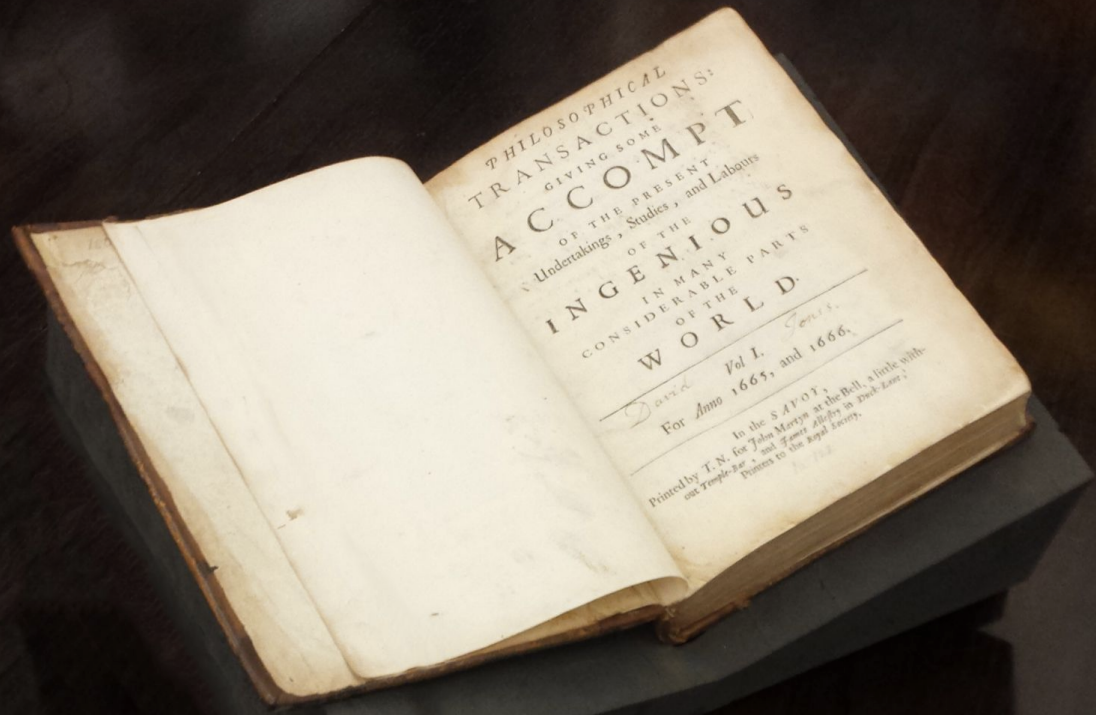 PHILOSOPHICAL
TRANSACTIONS:
GIVING SOME
ACCOMPT
OF THE PRESENT
Undertakings, Studies, and Labours
OF THE
INGENIOUS
IN MANY
CONSIDERABLE PARTS
OF THE
WORLD.
Vol I.
David Jones.
For Anno 1665, and 1666.
In the SAVOY,
Printed by T. N. for John Martyn at the Bell, a little with-
out Temple-Bar, and James Allestry in Duck-Lane,
Printers to the Royal Society.